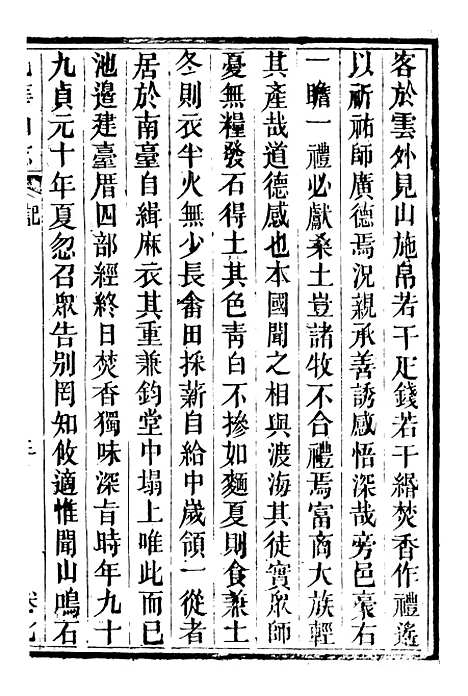 客於雲外見山施帛若干疋錢若干緡焚香作禮遙
以祈祐師廣德焉況親承善誘感悟深哉旁邑豪右
一瞻一禮必獻桑土豈諸牧不合禮焉富商大族輕
其產哉道德感也本國聞之相與渡海其徒實眾師
憂無糧發石得土其色靑白不摻如麵夏則食兼土
冬則衣半火無少長畬田採薪自給中歲領一從者
居於南臺自緝麻衣其重兼鈞堂中塌上唯此而已
池邊建臺厝四部經終日焚香獨味深旨時年九十
九貞元十年夏忽召眾告別罔知攸適惟聞山鳴石
山志 記